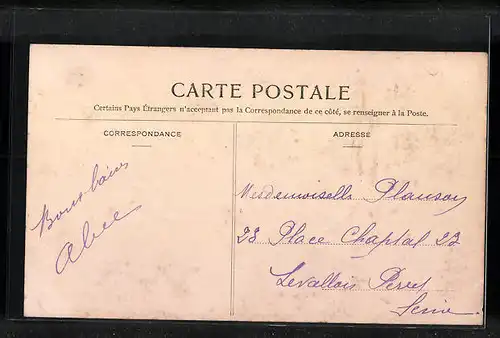 CARTE POSTALE
Certains Pays Étrangers n'acceptant pas la Correspondance de ce côté, se renseigner à la Poste.
CORRESPONDANCE
ADRESSE
Mesdemoiselle Planson
23 Place Chaptal 23
Levallois Perret
Seine